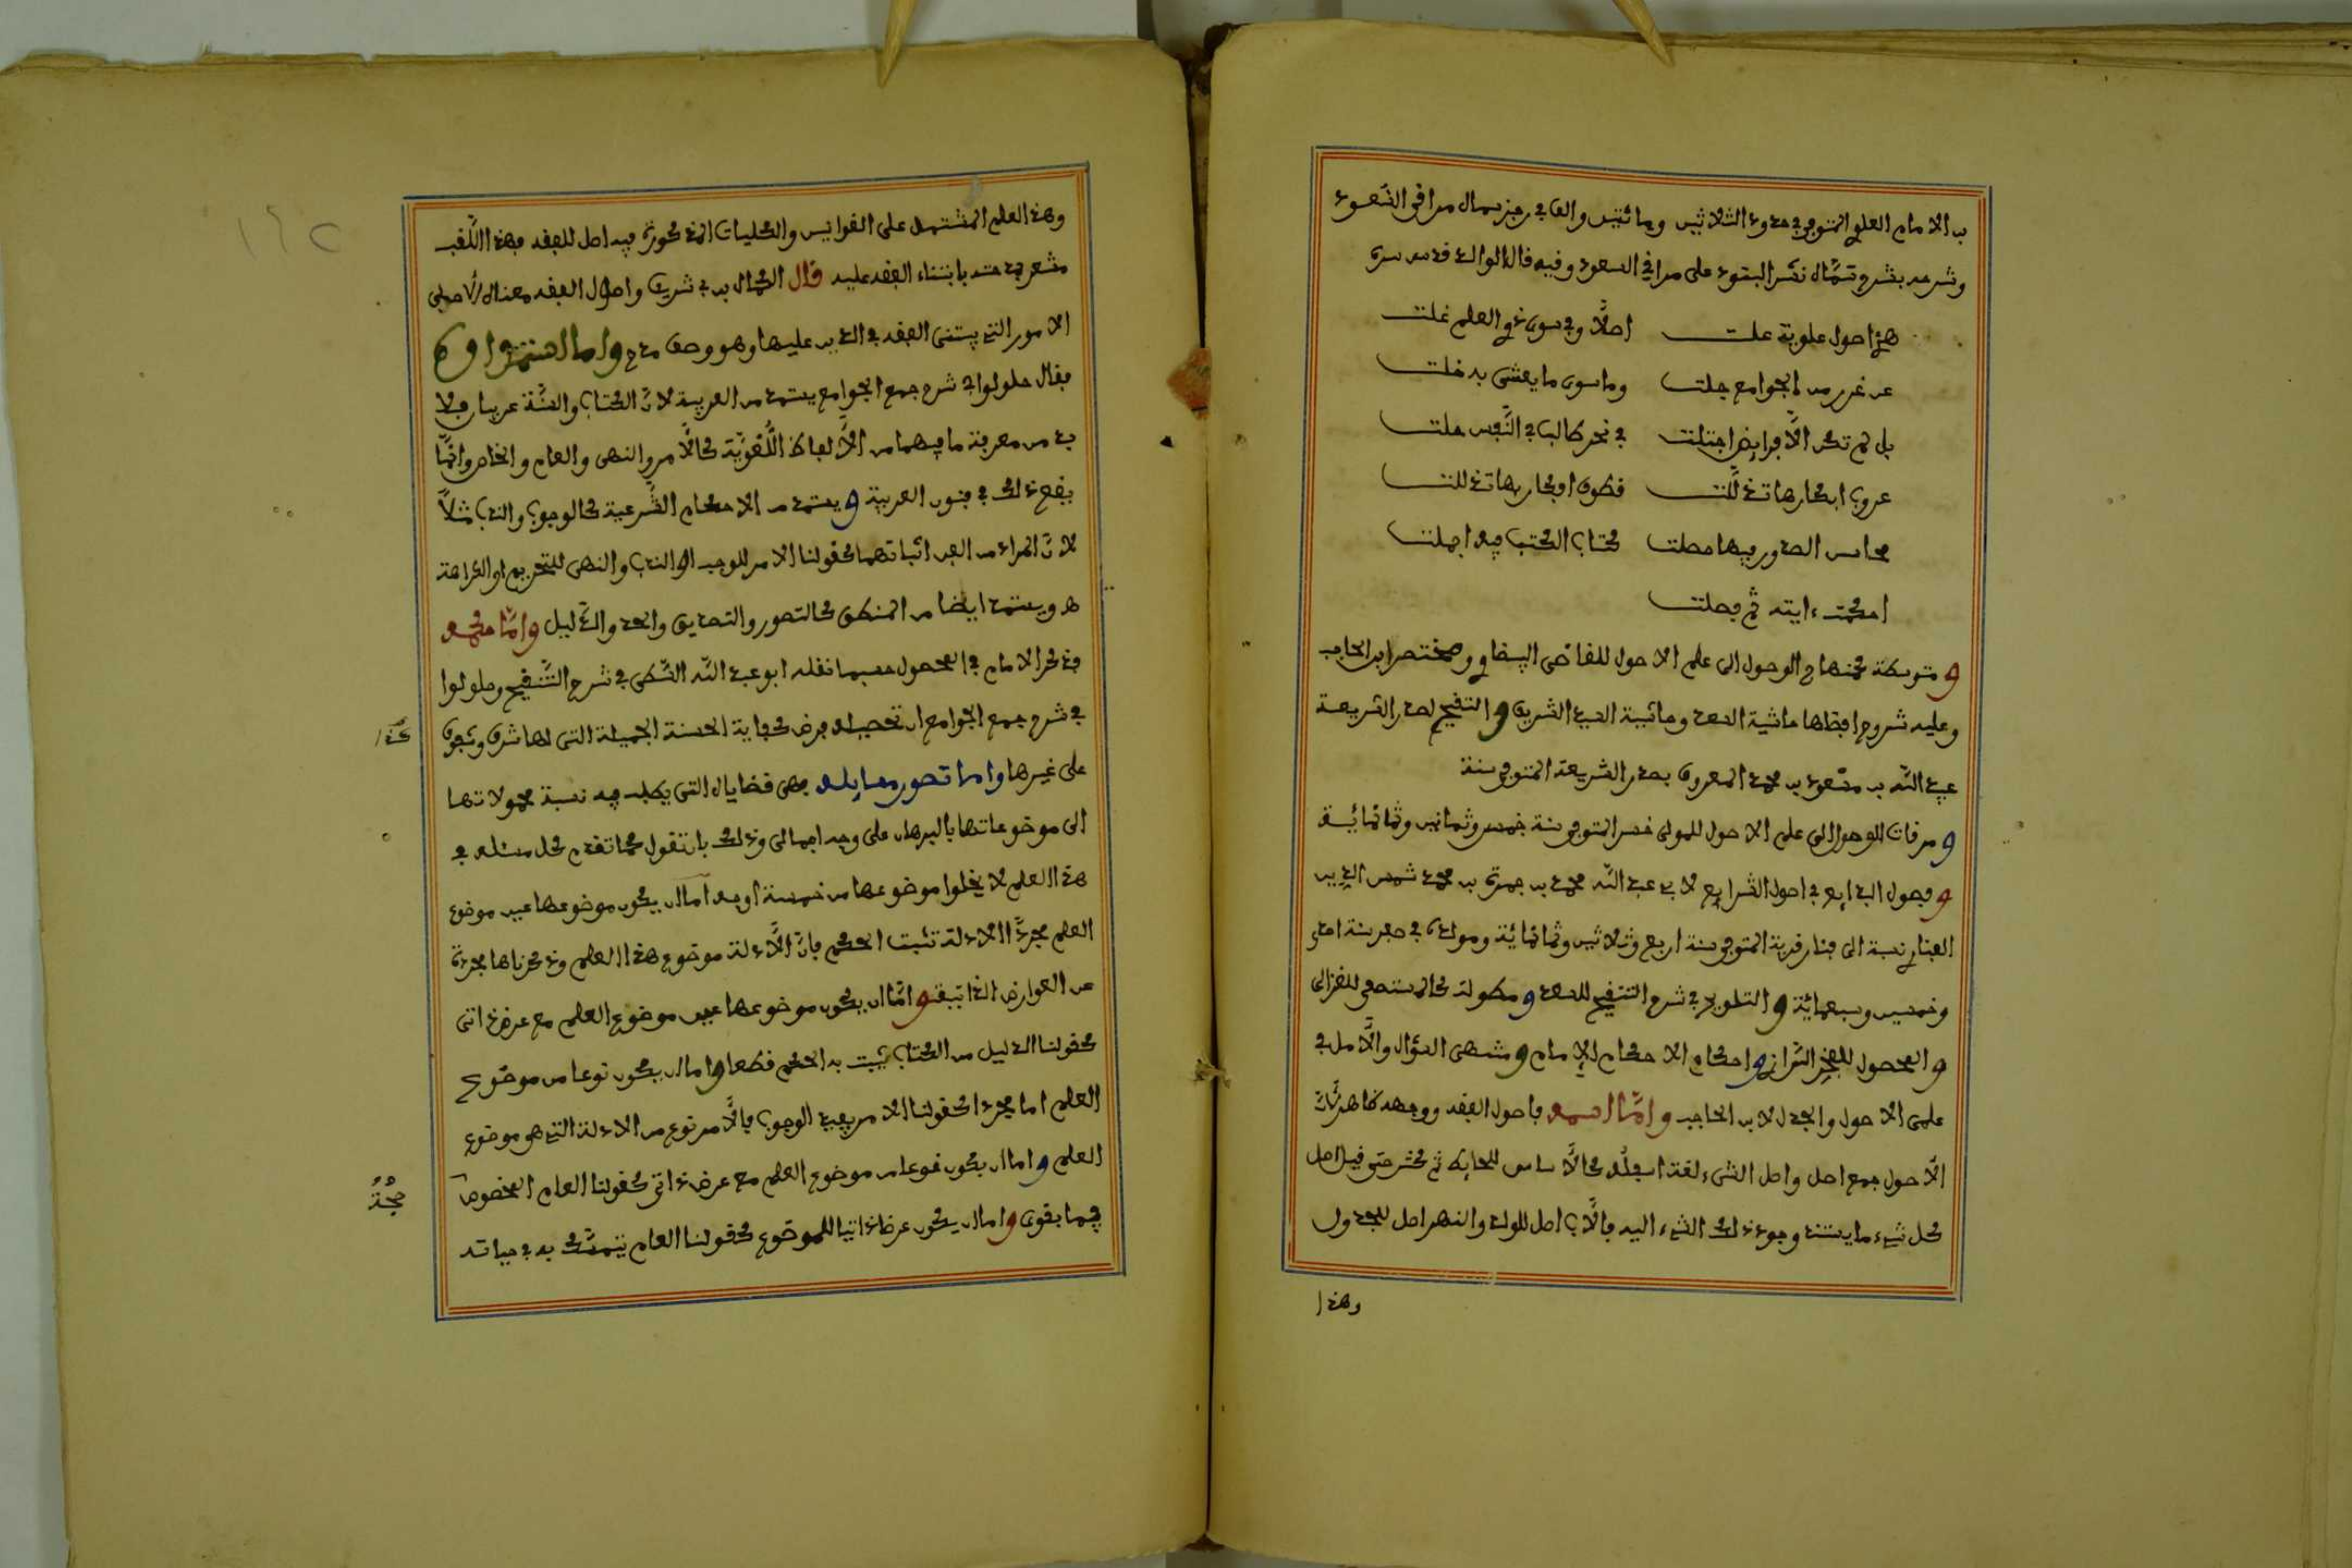 بن الامام العلوي المتوفي في حدود الثلاثين ومائتين والف في رجز سماه مراقي السعود
وشرحه بشرح سماه نشر البنود على مراقي السعود وفيه قال الوالد قدس سره
هذي اصول علوية علت اصلا وفي سوى ذوي العلم غلت
عن غرر من الجوامع جلت وما سوى ما يعتنى به خلت
بل لم تكن الا فرائض اجتلت في نحر طالب في النفس حلت
عروب ابكارها تذللت قطوف افكار بها تذللت
محاسن الصدور فيها حصلت كتاب الكتب فيه اجملت
احكمت ءايته ثم فصلت
ومتوسطة كمنهاج الوصول الى علم الاصول للقاضي البيضاوي ومختصر ابن الحاجب
وعليه شروح افضلها حاشية السعد وحاشية السيد الشريف والتنقيح لصدر الشريعة
عبيد الله بن مسعود بن محمد المعروف بصدر الشريعة المتوفى سنة
ومرقات الوصول الى علم الاصول للمولى خسر المتوفى سنة خمس وثمانين وثمانمائة
وفصول البدايع في اصول الشرايع لابي عبد الله محمد بن حمزة بن محمد شمس الدين
الفناري نسبة الى فنار قرية المتوفى سنة اربع وثلاثين وثمانمائة ومولده في صفر سنة احدى
وخمسين وسبعمائة والتلويح في شرح التنقيح للسعد ومطولة كالمستصفى للغزالي
والمحصول للفخر الرازي واحكام الاحكام للامام ومنتهى السؤال والامل في
علمي الاصول والجدل لابن الحاجب واما اسمه فاصول الفقه ووجهه ظاهر لان
الاصول جمع اصل واصل الشيء لغة اسفله كالاساس للحايط ثم كثر حتى قيل اصل
كل شيء ما يستند وجود ذلك الشيء اليه فالاب اصل للولد والنهر اصل للجدول
وهذا
وهذا العلم المشتمل على القوانين والكليات المذكورة فيه اصل للفقه فهذا اللقب
مشعر بمدحته بابتناء الفقه عليه قال الكمال بن ابي شريف واصول الفقه معناه الاصلي
الامور التي يبتنى الفقه في الدين عليها وهو وصف مدح واما استمداده
فقال حلولوا في شرح جمع الجوامع يستمد من العربية لان الكتاب والسنة عربيان فلا
بد من معرفة ما فيهما من الالفاظ اللغوية كالامر والنهي والعام والخاص وانما
يقع ذلك في فنون العربية ويستمد من الاحكام الشرعية كالوجوب والندب مثلا
لان المراد من الفن اثباتهما كقولنا الامر للوجوب او الندب والنهي للتحريم او الكراهة
هـ ويستمد ايضا من المنطق كالتصور والتصديق والحد والدليل واما حكمه
فذكر الامام في المحصول حسبما نقله ابو عبد الله الشطي في شرح التنقيح وحلولوا
في شرح جمع الجوامع ان تحصيله فرض كفاية الحسنة الجميلة التي لها شرف وتفوق
على غيرها واما تصور مسايله فهي قضاياه التي يطلب فيه نسبة محمولاتها
الى موضوعاتها بالبرهان على وجه اجمالي وذلك بان تقول كما تقدم كل مسئلة في
هذا العلم لا يخلوا موضوعها من خمسة اوجه اما ان يكون موضوعها عين موضوع
العلم مجردا الادلة تثبت الحكم فان الادلة موضوع هذا العلم وذكرناها مجردة
عن العوارض الذاتية واما ان يكون موضوعها عين موضوع العلم مع عرض ذاتي
كقولنا الدليل من الكتاب يثبت به الحكم قطعا واما ان يكون نوعا من موضوع
العلم اما مجردا كقولنا الامر يفيد الوجوب فالامر نوع من الادلة التي هو موضوع
العلم واما ان يكون نوعا من موضوع العلم مع عرض ذاتي كقولنا العام المخصوص
فيما بقي واما ان يكون عرضا ذاتيا للموضوع كقولنا العام يتمسك به في حياته
كذا
حجة